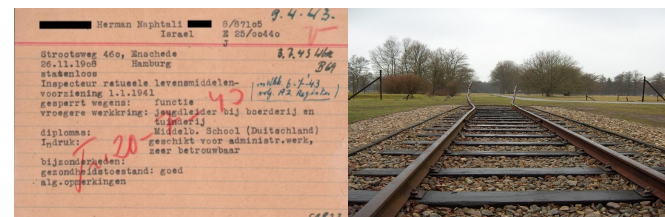 9.4.43.
Herman Naphtali 8/87105
Israel E 25/oo44o
J
Strootsweg 46o, Enschede
26.11.19o8 Hamburg
statenloos
Inspecteur rətueele levensmiddelen-
voorziening 1.1.1941
gesperrt wegens: functie
vroegere werkkring: jeugdleider bij boerderij en
tuinderij
diplomas: Middelb. School (Duitschland)
Indruk: geschikt voor administr.werk,
zeer betrouwbaar
bijzonderheden:
gezondheidstoestand: goed
alg.opmerkingen